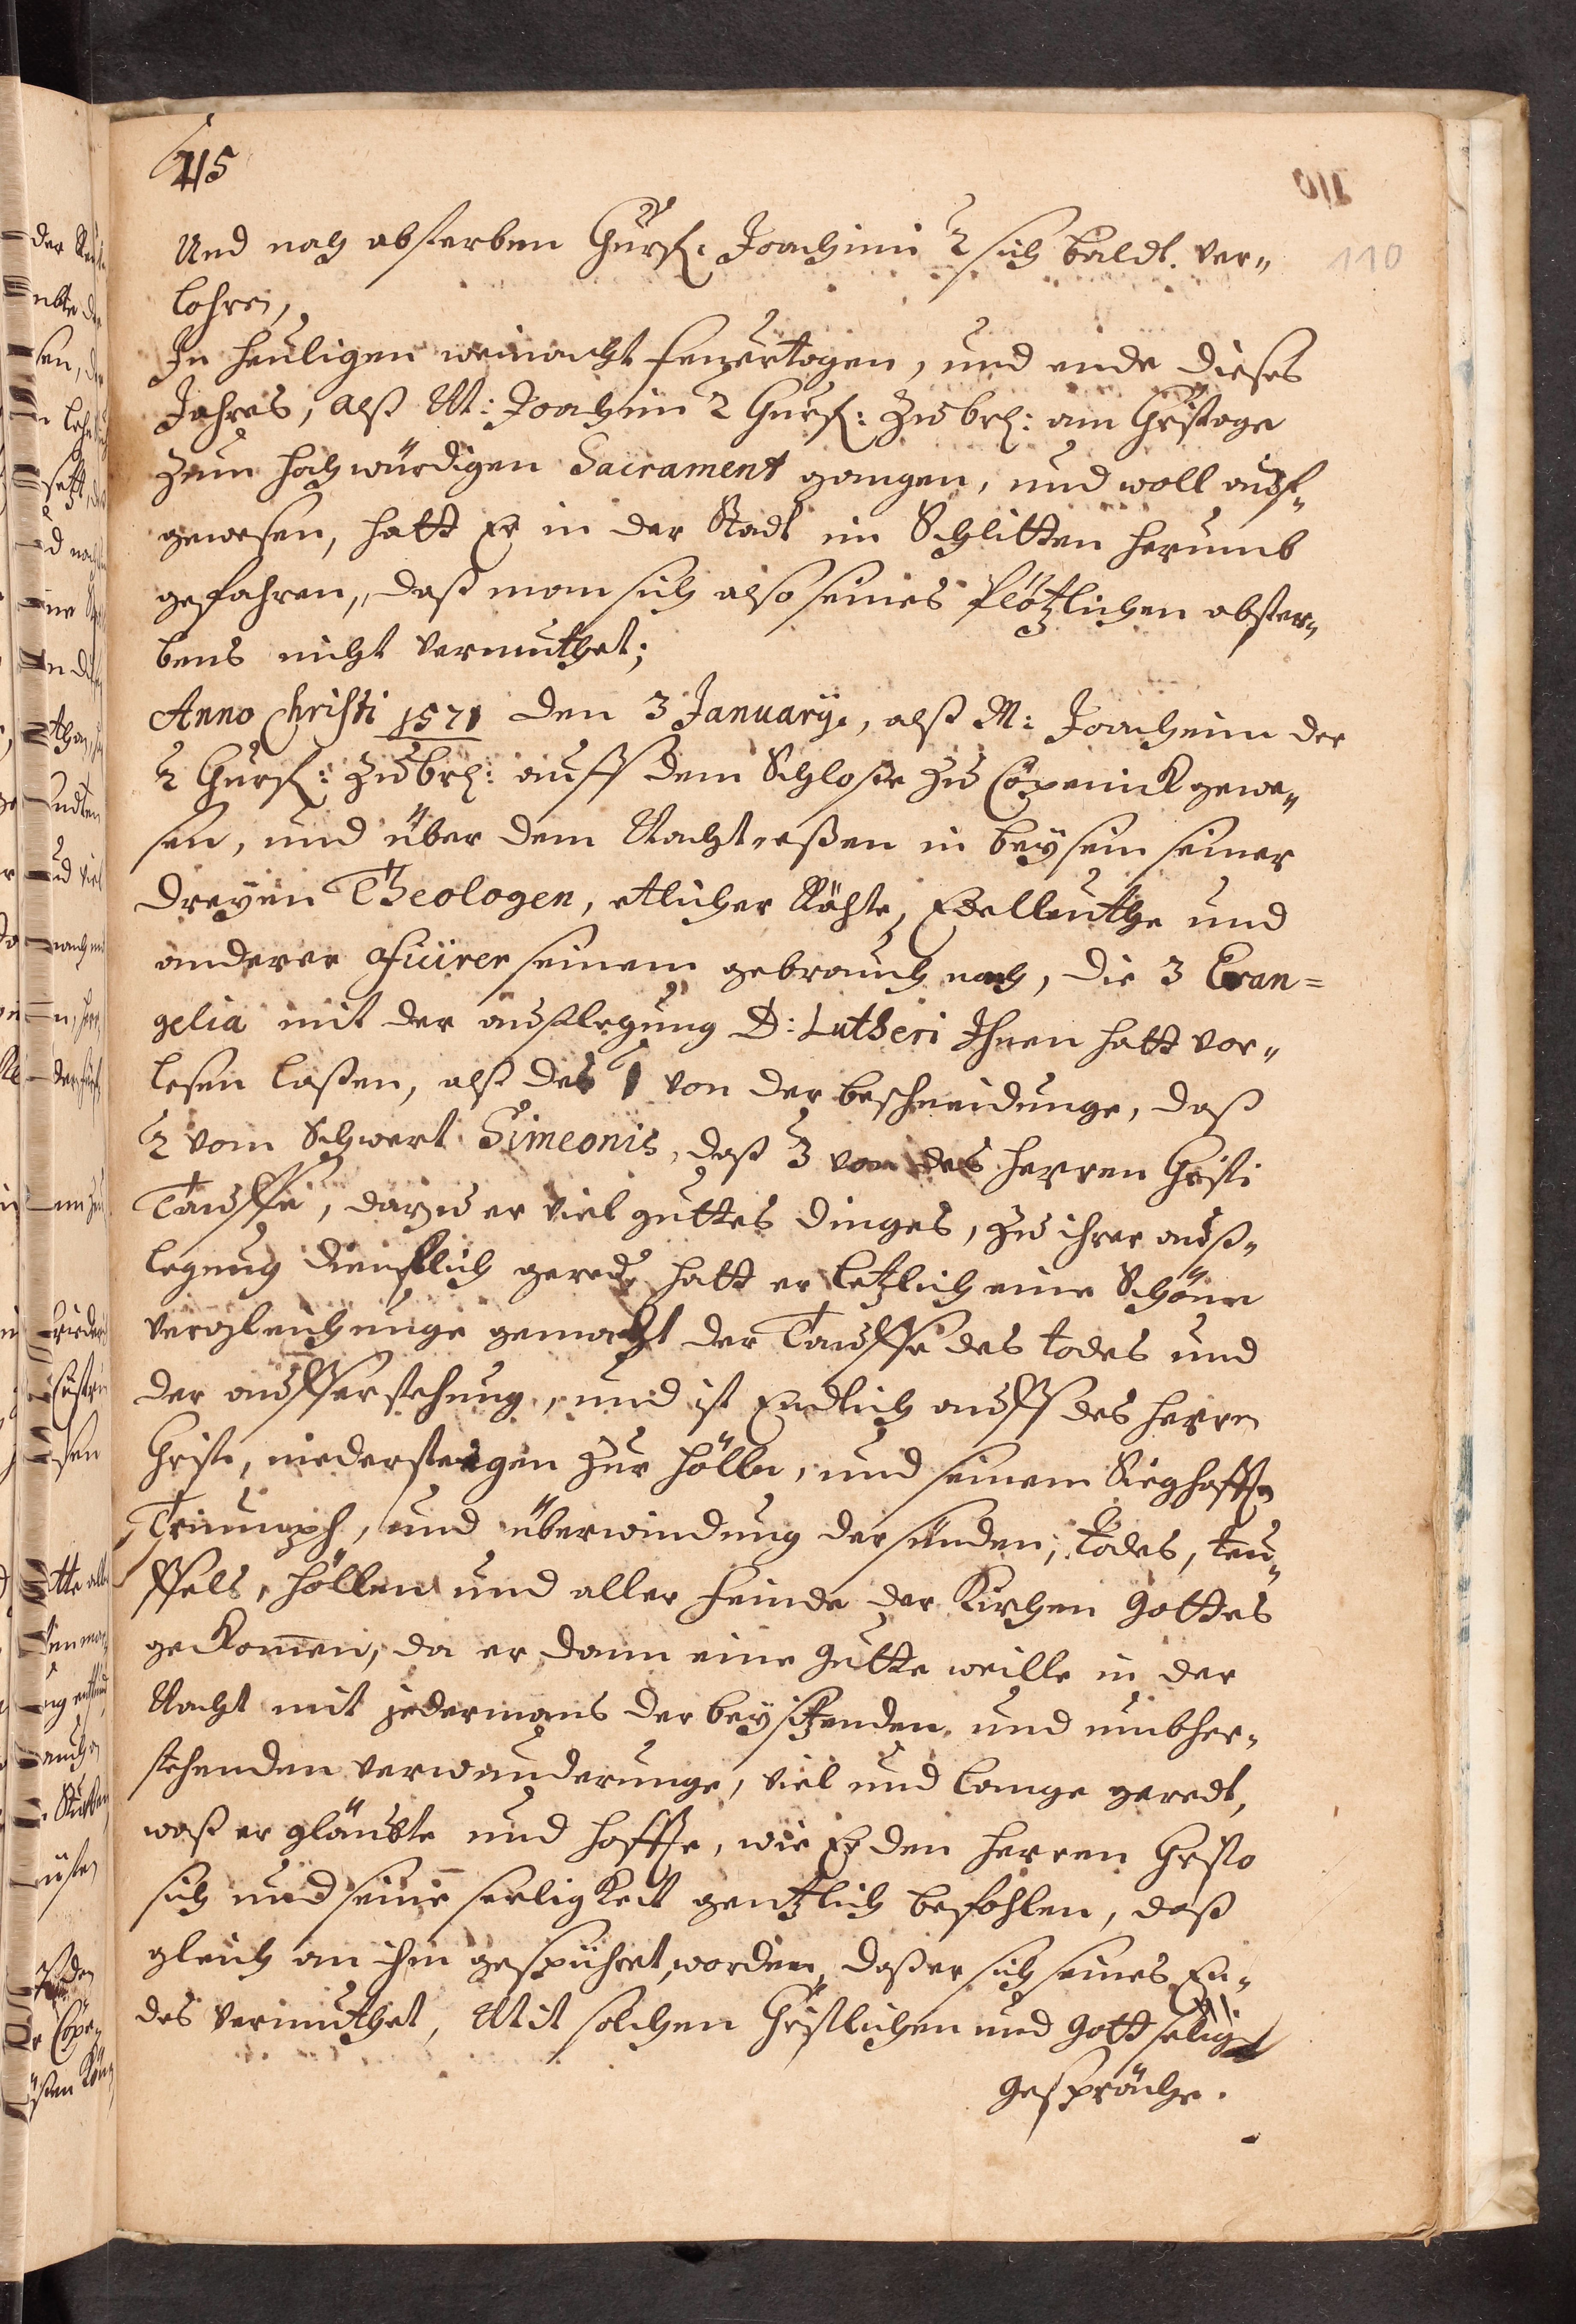 415
110
Und nach absterben Churf: Joachimi 2 sich baldt. ver„
lohren,
In heuligen weinacht feuyertagen, und ende dieses
Jahres, alß M: Joachim 2 Churf: zu brl: am Christage
zum hochwürdigen Sacrament gangen, und woll auff„
gewesen, hatt Er in der Stadt im Schlitten herumb
gefahren, daß man sich also seines Plötzlichen abster„
bens nicht vermuthet;
Anno Christi 1571 den 3 January, alß M: Joachim der
2 Churf: zu brl: auff dem Schloße zu Cöpenick gewe„
sen, und über dem Nachteßen in beysein seiner
dreyen Theologen, etlicher Räthe, Edelleuthe und
anderer fürer seinem gebrauch nach, die 3 Evan=
gelia mit der außlegung D: Lutheri Ihnen hatt vor„
lesen laßen, alß des 1 von der beschneidunge, daß
2 vom Schwert Simeonis, daß 3 von des herren Christi
Tauffe, darzu er viel guttes dinges, zu ihrer auß„
legung dienstlich geredt hatt er letzlich eine Schöne
vergleichunge gemacht der Tauffe des todes und
der aufferstehung, und ist Endlich auff des herren
Christi, niedersteigen zur hölle, und seinem Sieghafften
Triumaph, und überwindung der sünden, todes, teu„
ffels, höllen und aller feinde der Kirchen Gottes
gekomen, da er dann eine gutte weille in der
Nacht mit jedermans der beysitzenden und umbher„
stehenden verwunderunge, viel und lange geredt,
waß er gläubte und hoffte, wie Er den herren Christo
sich und seine seeligkeit gentzlich befohlen, daß
gleich an ihm gespühret worden, daß er sich seines En„
des vermuthet, Mit solchen Christlichen und Gottselig
gespräche.